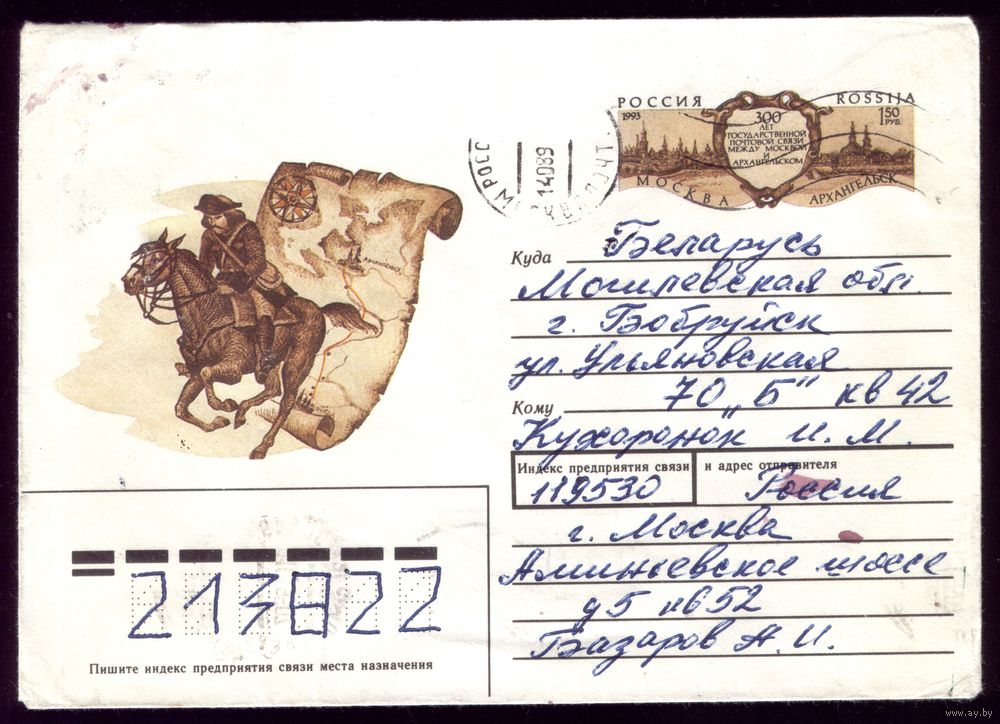 РОССИЯ ROSSIJA
1993
1.50
РУБ.
300
ЛЕТ
ГОСУДАРСТВЕННОЙ
ПОЧТОВОЙ СВЯЗИ
МЕЖДУ МОСКВОЙ
И
АРХАНГЕЛЬСКОМ
МОСКВА АРХАНГЕЛЬСК
14089
Куда Беларусь
Могилевская обл.
г. Бобруйск
ул. Ульяновская
70 „Б" кв 42
Кому
Кухоронок И. М.
Индекс предприятия связи и адрес отправителя
119530 Россия
г. Москва
Аминьевское шоссе
д 5 кв 52
Базаров А. И.
213822
Пишите индекс предприятия связи места назначения
www.ay.by